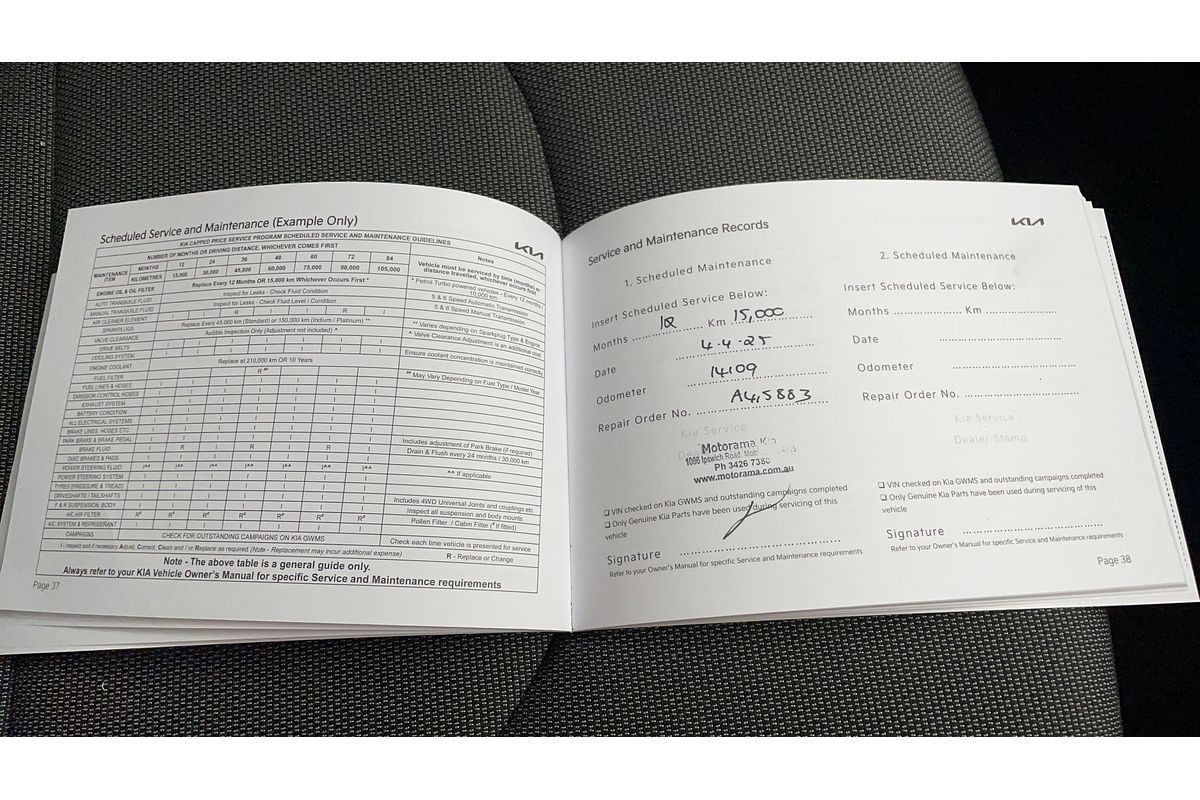 Scheduled Service and Maintenance (Example Only)
KIA
KIA CAPPED PRICE SERVICE PROGRAM SCHEDULED SERVICE AND MAINTENANCE GUIDELINES
NUMBER OF MONTHS OR DRIVING DISTANCE, WHICHEVER COMES FIRST
Notes
MAINTENANCE ITEM
MONTHS 12 24 36 48 60 72 84
KILOMETRES 15,000 30,000 45,000 60,000 75,000 90,000 105,000
Vehicle must be serviced by time (months) or distance travelled, whichever occurs first
ENGINE OIL & OIL FILTER Replace Every 12 Months OR 15,000 km Whichever Occurs First * * Petrol Turbo powered vehicles - Every 12 months / 10,000 km
AUTO TRANSAXLE FLUID Inspect for Leaks - Check Fluid Condition 5 & 6 Speed Automatic Transmission
MANUAL TRANSAXLE FLUID Inspect for Leaks - Check Fluid Level / Condition 5 & 6 Speed Manual Transmission
AIR CLEANER ELEMENT I I R I R I I
SPARKPLUGS Replace Every 45,000 km (Standard) or 150,000 km (Iridium / Platinum) ** ** Varies depending on Sparkplug Type & Engine
VALVE CLEARANCE Audible Inspection Only (Adjustment not included) ^ ^ Valve Clearance Adjustment is an additional cost
DRIVE BELTS I I I I I I I
COOLING SYSTEM I I I I I I I Ensure coolant concentration is maintained correctly
ENGINE COOLANT Replace at 210,000 km OR 10 Years
FUEL FILTER R ## ## May Vary Depending on Fuel Type / Model Year
FUEL LINES & HOSES I I I I I I I
EMISSION CONTROL HOSES I I I I I I I
EXHAUST SYSTEM I I I I I I I
BATTERY CONDITION I I I I I I I
ALL ELECTRICAL SYSTEMS I I I I I I I
BRAKE LINES, HOSES ETC I I I I I I I
PARK BRAKE & BRAKE PEDAL I I I I I I I Includes adjustment of Park Brake (if required)
BRAKE FLUID I R I R I R I Drain & Flush every 24 months / 30,000 km
DISC BRAKES & PADS I I I I I I I
POWER STEERING FLUID I^^ I^^ I^^ I^^ I^^ I^^ I^^ ^^ If applicable
POWER STEERING SYSTEM I I I I I I I
TYRES (PRESSURE & TREAD) I I I I I I I
DRIVESHAFTS / TAILSHAFTS I I I I I I I Includes 4WD Universal Joints and couplings etc
F & R SUSPENSION, BODY I I I I I I I Inspect all suspension and body mounts
A/C AIR FILTER R# R# R# R# R# R# R# Pollen Filter / Cabin Filter (# if fitted)
A/C SYSTEM & REFRIGERANT I I I I I I I
CAMPAIGNS CHECK FOR OUTSTANDING CAMPAIGNS ON KIA GWMS Check each time vehicle is presented for service
I - Inspect and if necessary Adjust, Correct, Clean and / or Replace as required (Note - Replacement may incur additional expense) R - Replace or Change
Note - The above table is a general guide only.
Always refer to your KIA Vehicle Owner's Manual for specific Service and Maintenance requirements
Page 37
Service and Maintenance Records
KIA
1. Scheduled Maintenance
Insert Scheduled Service Below:
Months 12 Km 15,000
Date 4.4.25
Odometer 14109
Repair Order No. A45883
Kia Service
Motorama Kia
1086 Ipswich Road,
Ph 3426 738
www.motorama.com.au
VIN checked on Kia GWMS and outstanding campaigns completed
Only Genuine Kia Parts have been used during servicing of this
vehicle
Signature
Refer to your Owner's Manual for specific Service and Maintenance requirements
2. Scheduled Maintenance
Insert Scheduled Service Below:
Months Km
Date
Odometer
Repair Order No.
Kia Service
Dealer Stamp
VIN checked on Kia GWMS and outstanding campaigns completed
Only Genuine Kia Parts have been used during servicing of this
vehicle
Signature
Refer to your Owner's Manual for specific Service and Maintenance requirements
Page 38